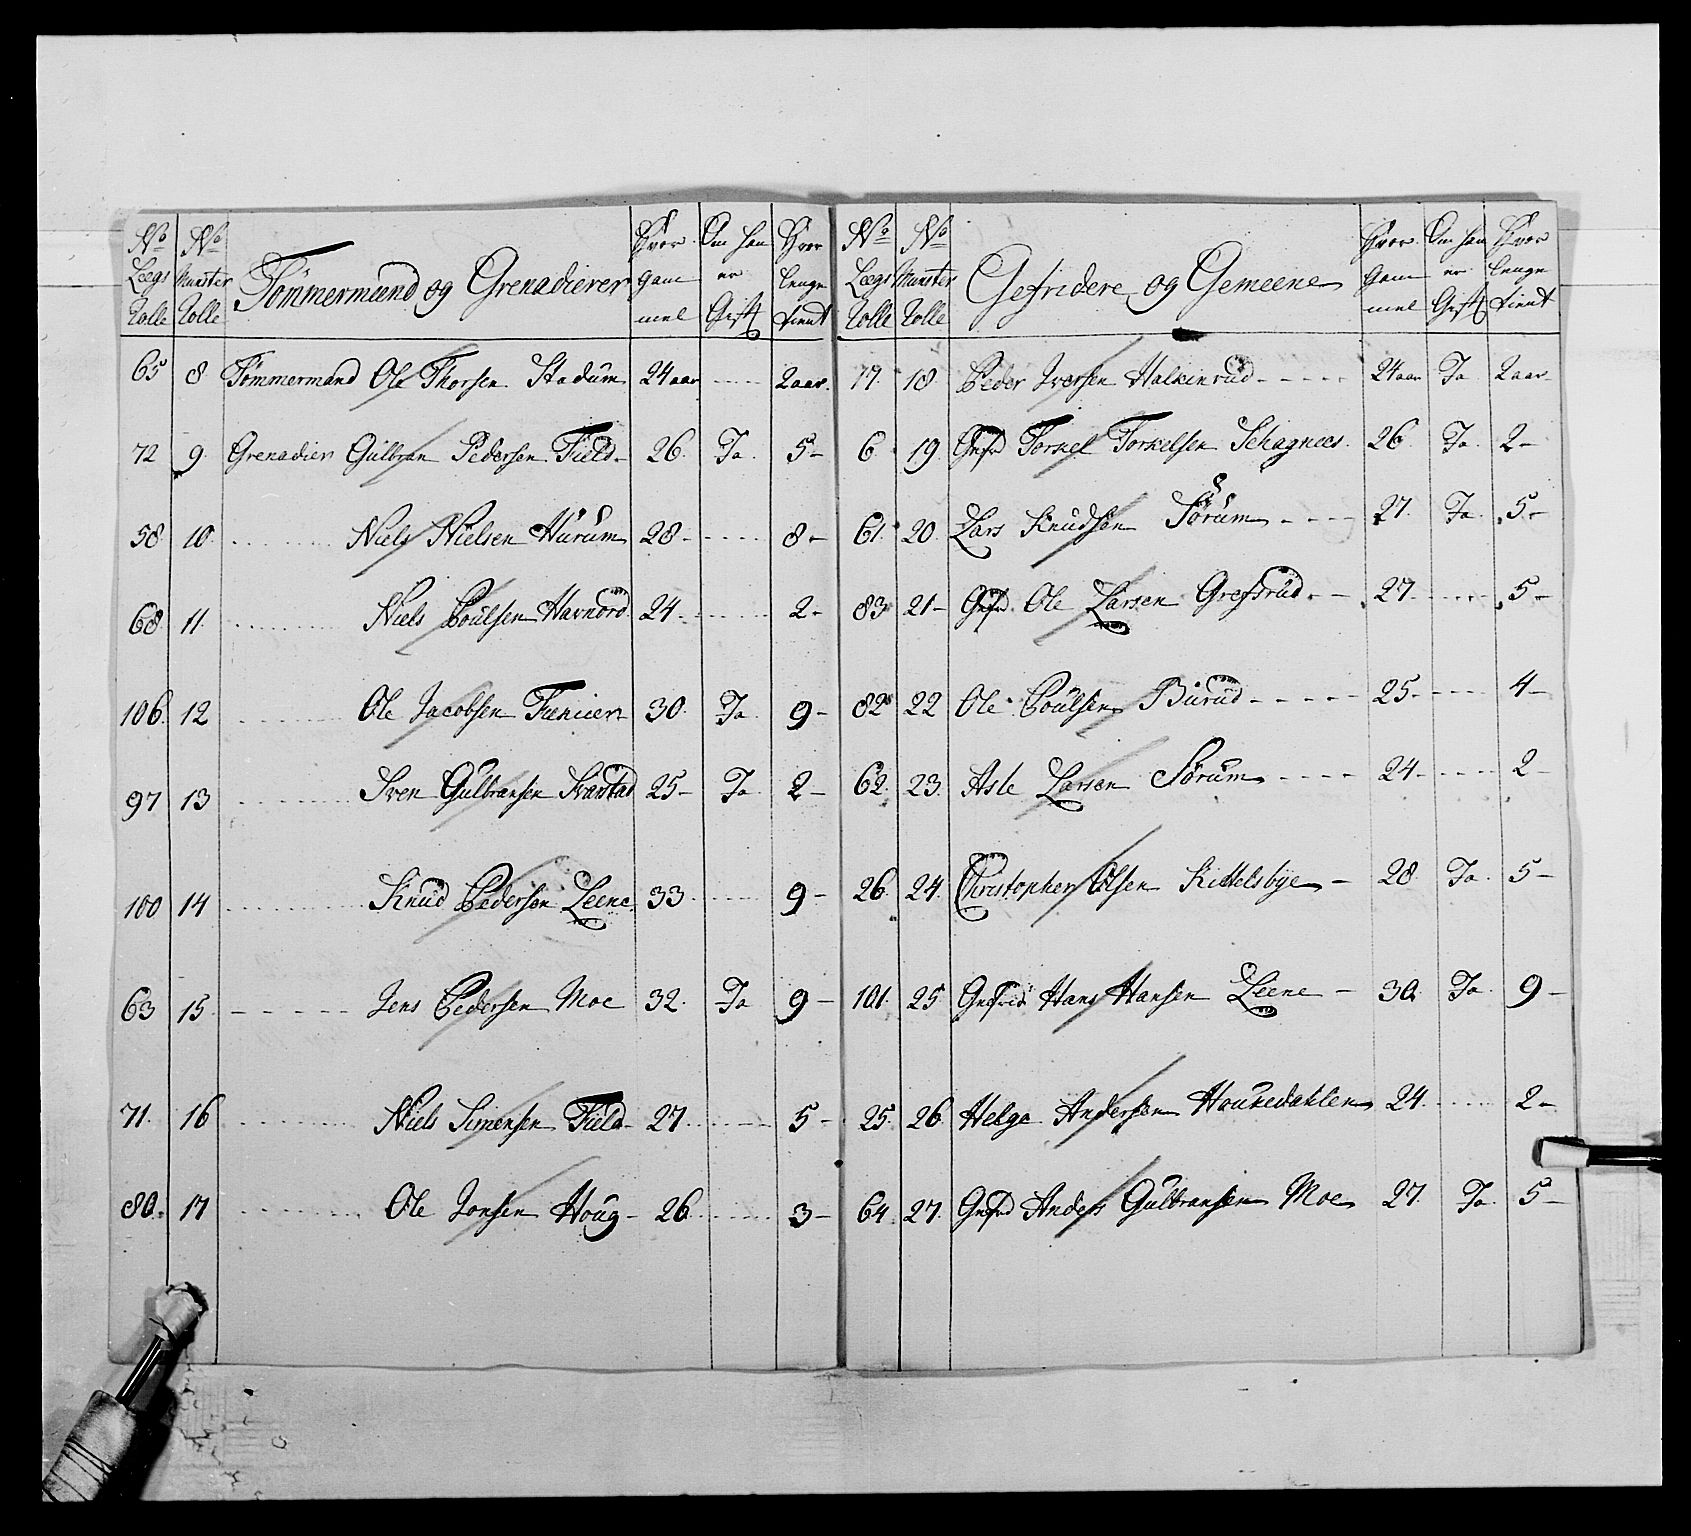 No Lægs Rolle | No Munster Rolle | Tömmermænd og Grenadierer | Hvor gam mel | Om han er Gift | Hvor lenge tient
65 | 8 | Tömmermand Ole Thorsen Stadum | 24 aar | ---- | 2 aar.
72 | 9. | Grenadier Gulbran Pedersen Field- | 26. | Ja. | 5-
58. | 10. | Niels Nielsen Hürum | 28- | ---- | 8-
68. | 11. | Niels Poülsen Havnord | 24. | ---- | 2-
106. | 12 | Ole Jacobsen | 30. | Ja. | 9-
97 | 13 | Sven Gulbransen Svarstad | 25- | Ja. | 2-
100 | 14 | Knud Pedersen Leene | 33 | ---- | 9-
63 | 15. | Jens Pedersen Moe | 32. | Ja | 9-
71. | 16 | Niels Simensen Field- | 27. | ---- | 5-
80. | 17 | Ole Jonsen Houg- | 26. | ---- | 3-
No Lægs Rolle | No Munster Rolle | Gefridere og Gemeene | Hvor Gam mel | Om han er Gift | Hvor lenge tient
77. | 18 | Peder Iversen Halkinrud | 24 aar | Ja | 2 aar-
6. | 19. | Gefrd Torkel Torkelsen | 26. | Ja. | 2-
61. | 20. | Lars Knudsen Sörum | 27. | Ja. | 5-
83 | 21- | Gefrd. Ole Larsen Grefsrud.- | 27. | ---- | 5-
82 | 22 | Ole Poülsen Burud | 25- | ---- | 4-
62. | 23. | Asle Larsen Sörum | 24- | ---- | 2-
26. | 24. | Christopher Olsen Kittelsbye- | 28. | Ja. | 5-
101. | 25 | Gefrid Hans Hansen Leene- | 30. | Ja. | 9-
25. | 26 | Helge Andersen Houkedahlen | 24. | ---- | 2-
64. | 27. | Gefrd Anders Gulbransen Moe | 27. | Ja | 5-